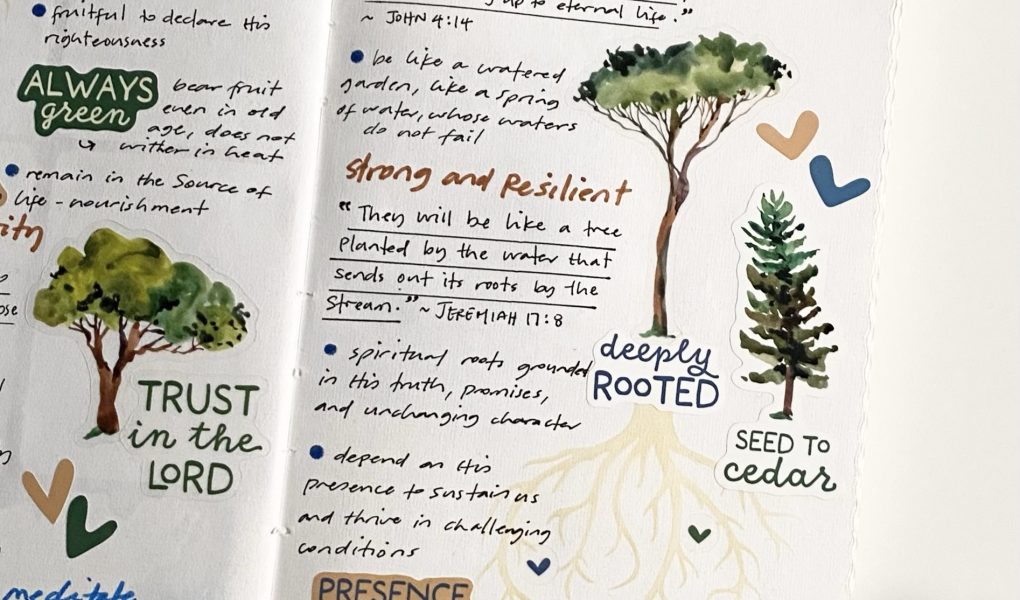 fruitful to declare His
righteousness
ALWAYS
green
bear fruit
even in old
age, does not
wither in heat
remain in the Source of
life - nourishment
ity
ose
TRUST
in the
LORD
meditate
up to eternal life."
~ JOHN 4:14
be like a watered
garden, like a spring
of water, whose waters
do not fail
Strong and Resilient
"They will be like a tree
planted by the water that
sends out its roots by the
stream." ~ JEREMIAH 17:8
spiritual roots grounded
in His truth, promises,
and unchanging character
depend on His
presence to sustain us
and thrive in challenging
conditions
PRESENCE
deeply
ROOTED
SEED TO
cedar